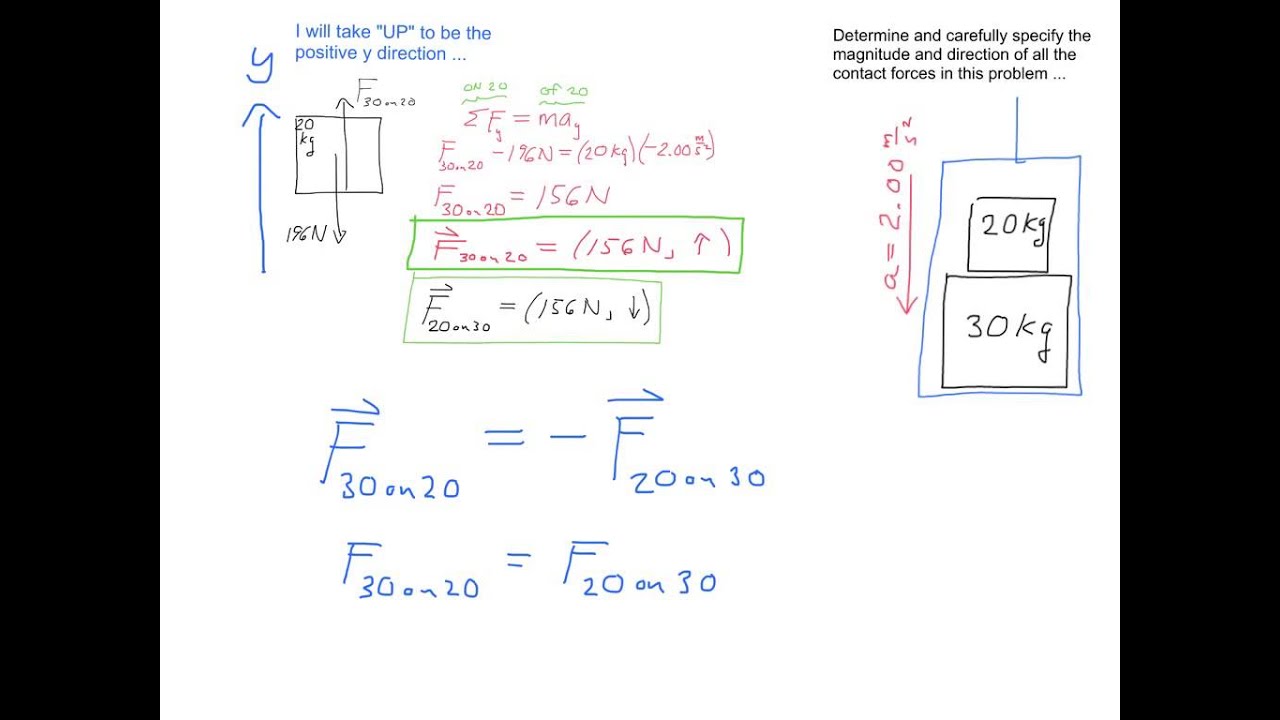 I will take "UP" to be the
positive y direction ...
y
F30 on 20
20
kg
196N
ON 20 of 20
ΣFy = may
F30 on 20 - 196N = (20kg)(-2.00 m/s²)
F30 on 20 = 156N
F⃗30 on 20 = (156N, ↑)
F⃗20 on 30 = (156N, ↓)
F⃗30 on 20 = - F⃗20 on 30
F30 on 20 = F20 on 30
Determine and carefully specify the
magnitude and direction of all the
contact forces in this problem ...
a = 2.00 m/s²
20kg
30kg